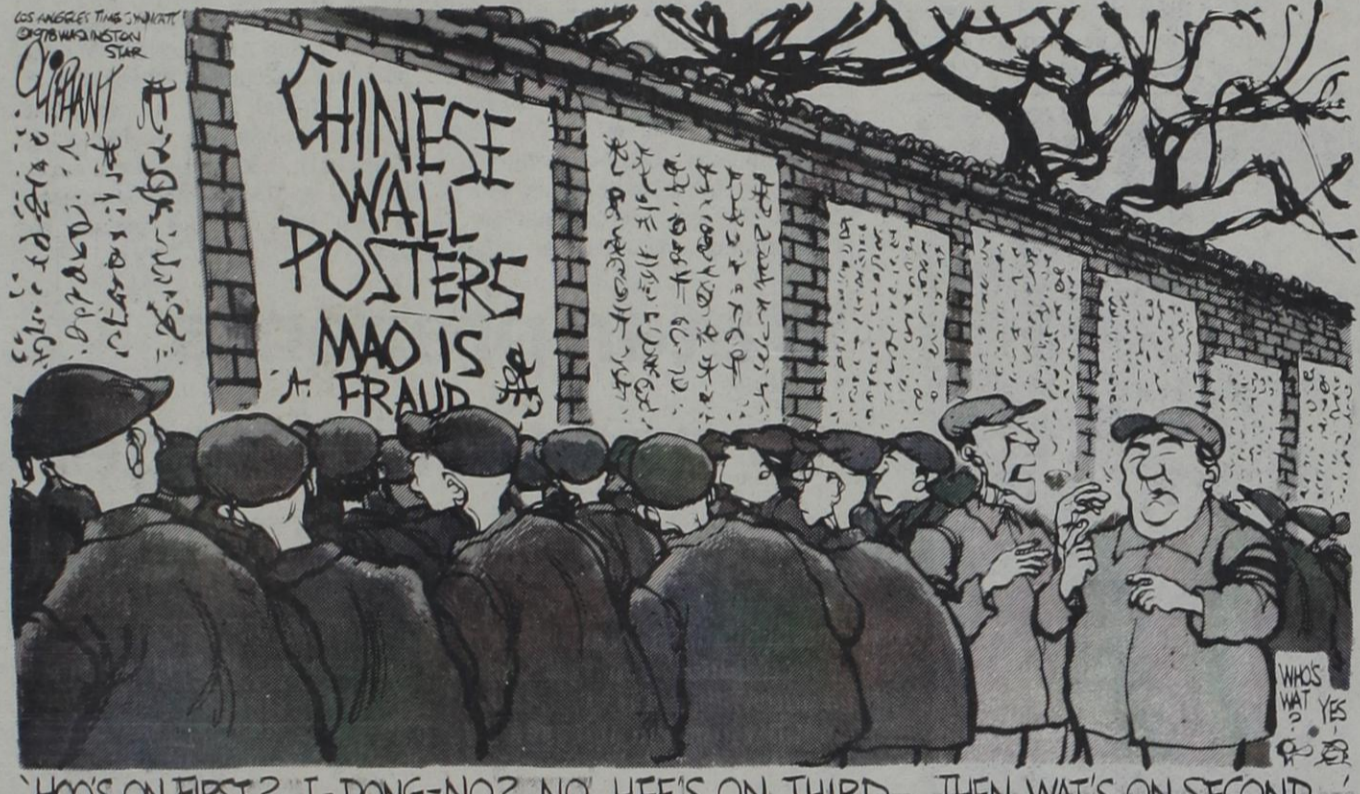 LOS ANGELES TIMES SYNDICATE
©1978 WASHINGTON
STAR
OLIPHANT
CHINESE
WALL
POSTERS
MAO IS
FRAUD
WHO'S
WAT
?
YES
'HOO'S ON FIRST? I-DONG-NO? NO, HEE'S ON THIRD... THEN WAT'S ON SECOND...'